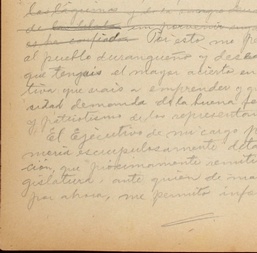 las páginas
de la
es la confiada Por esto me
al pueblo durangueño y deseo
que tengais el mayor acierto en
tiva que vais a emprender y q
vidad demanda de la buena fe
y patriotismo de los representan
El Ejecutivo de mi cargo p
meria escrupulosamente deta
ción, que "próximamente remitir
gislatura, ante quien de ma
por ahora, me permito info